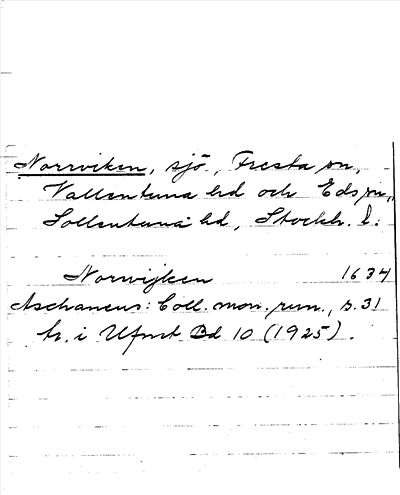 Norrviken, sjö, Fresta sn,
Vallentuna hd och Eds sn,
Sollentuna hd, Stockh. l:
Norwijken 1634
Aschaneus: Coll. mon. run., s. 31
tr. i Ufmt Bd 10 (1925).